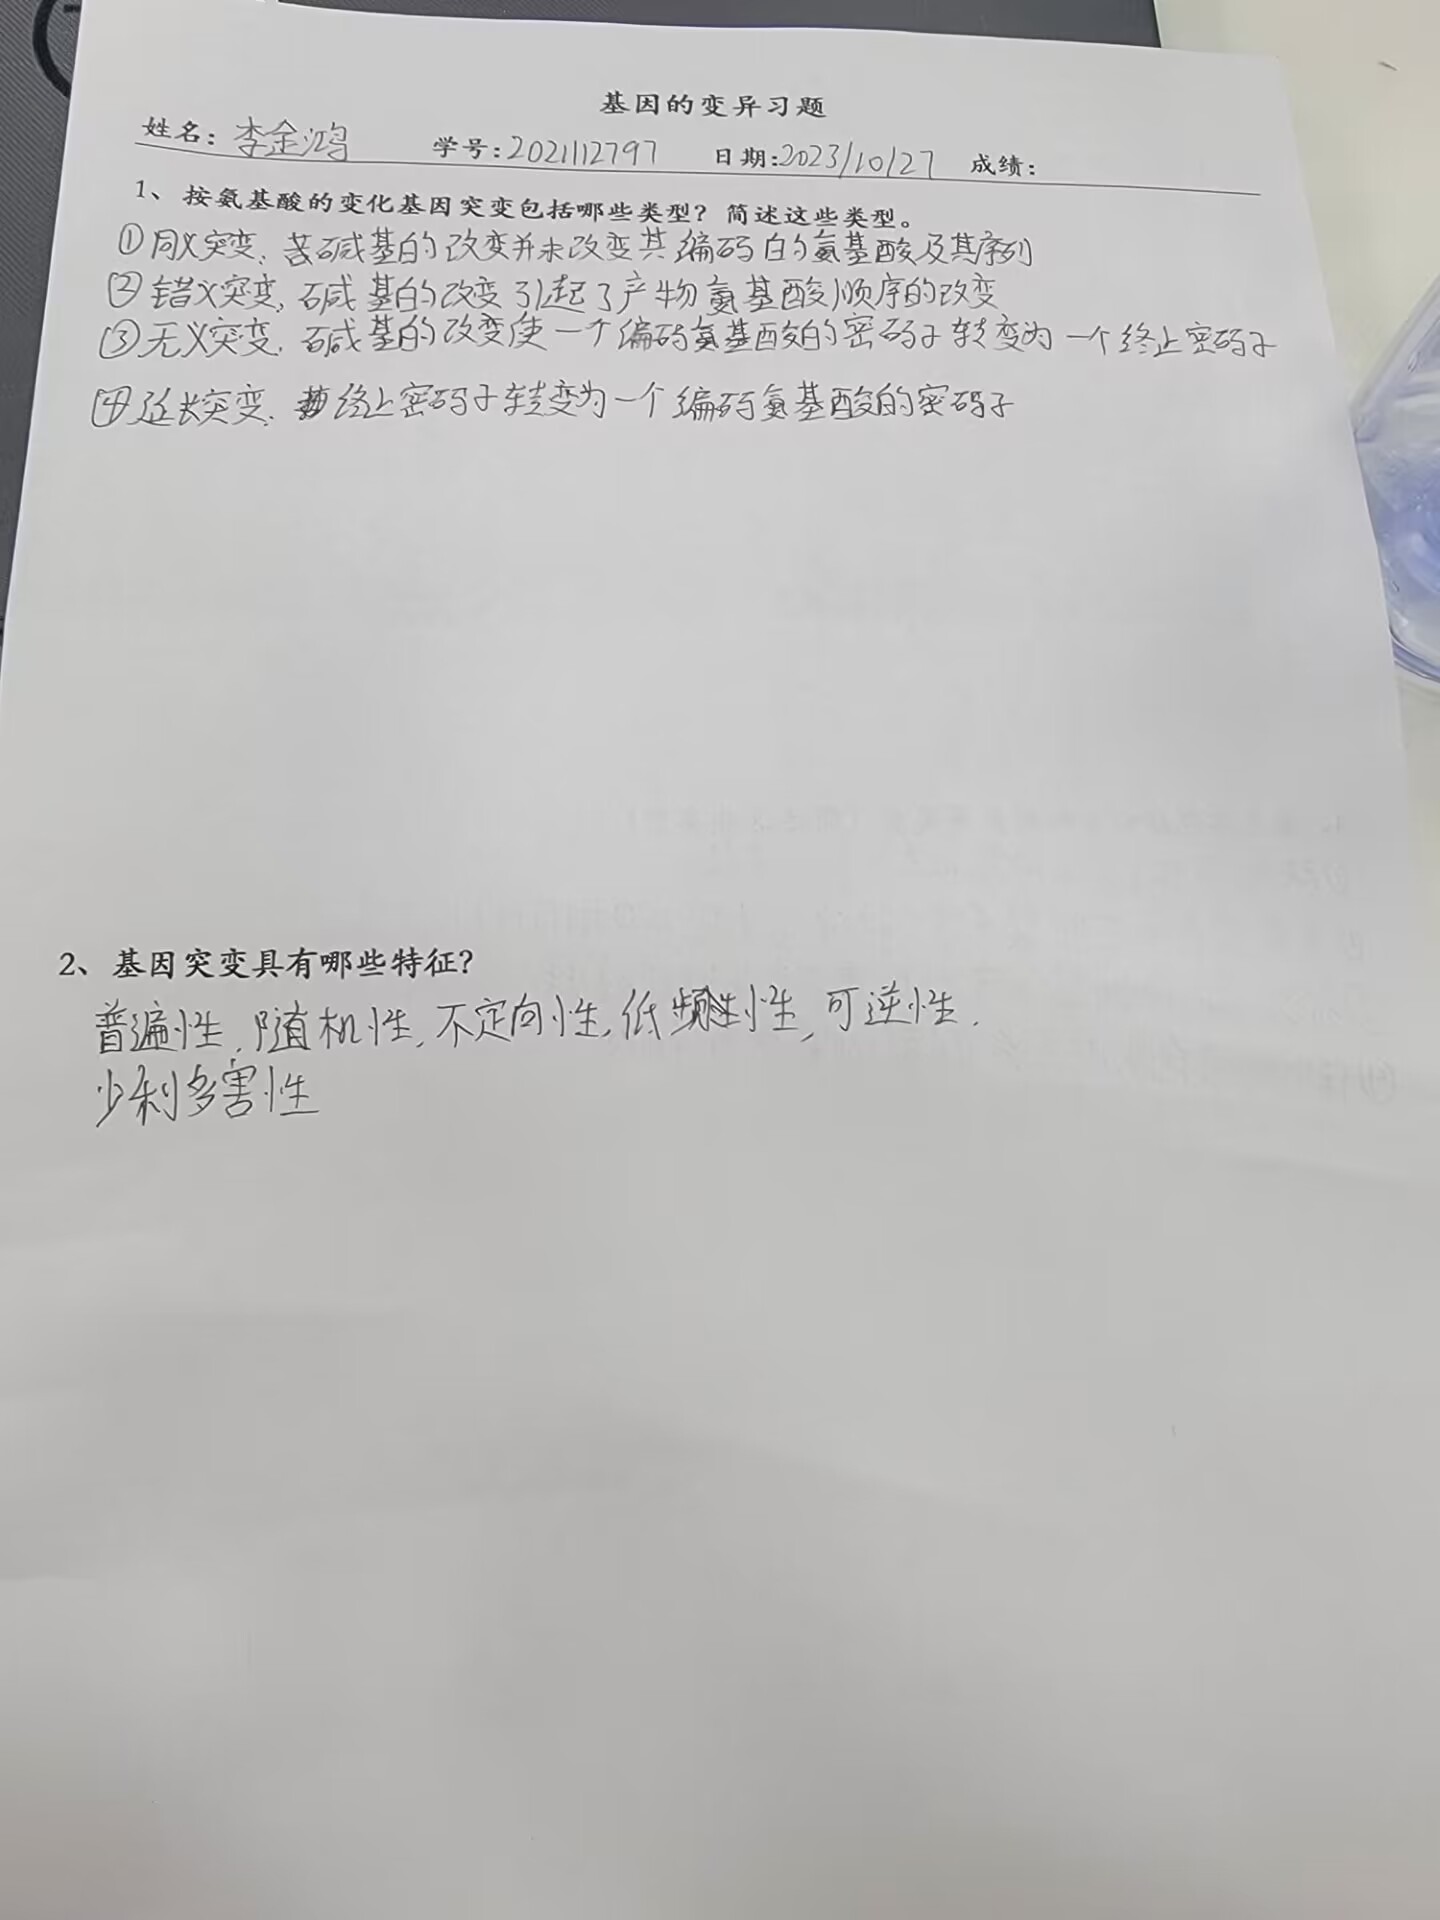 基因的变异习题
姓名：李金鸿 学号：2021112797 日期：2023/10/27 成绩：
1、按氨基酸的变化基因突变包括哪些类型？简述这些类型。
①同义突变，若碱基的改变并未改变其编码的氨基酸及其序列
②错义突变，碱基的改变引起了产物氨基酸顺序的改变
③无义突变，碱基的改变使一个编码氨基酸的密码子转变为一个终止密码子
④延长突变，终止密码子转变为一个编码氨基酸的密码子
2、基因突变具有哪些特征？
普遍性，随机性，不定向性，低频性，可逆性，
少利多害性